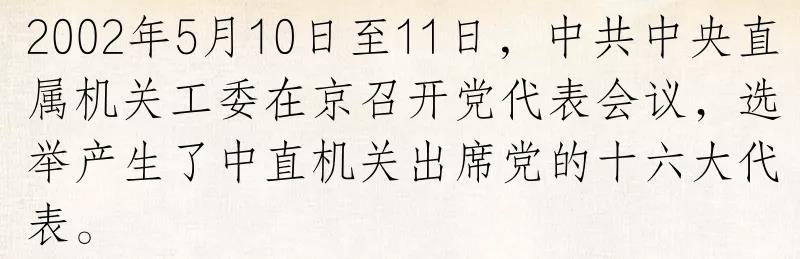 2002年5月10日至11日，中共中央直
属机关工委在京召开党代表会议，选
举产生了中直机关出席党的十六大代
表。